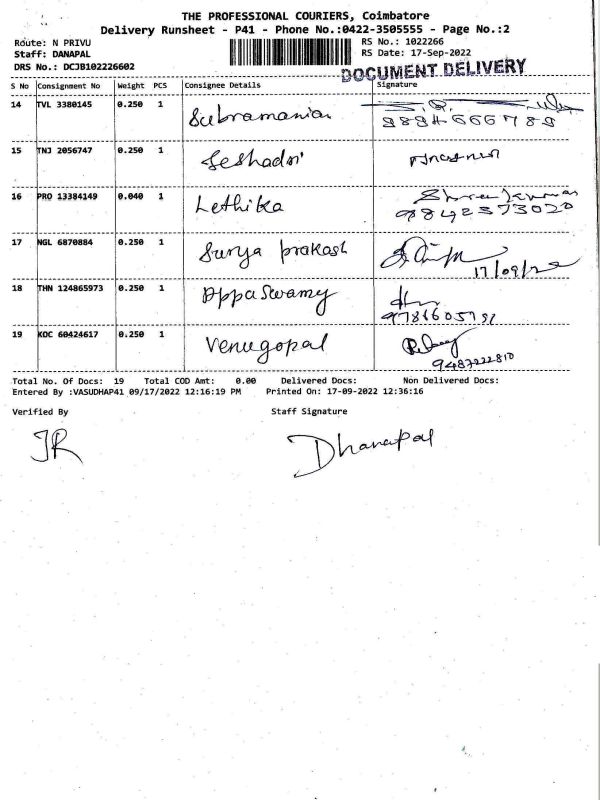 THE PROFESSIONAL COURIERS, Coimbatore
Delivery Runsheet - P41 - Phone No.:0422-3505555 - Page No.:2
Route: N PRIVU
RS No.: 1022266
Staff: DANAPAL
RS Date: 17-Sep-2022
DRS No.: DCJB102226602
DOCUMENT DELIVERY
S No Consignment No Weight PCS Consignee Details Signature
14 TVL 3380145 0.250 1 Subramanian
9894666789
15 TNJ 2056747 0.250 1 Seshadri
16 PRO 13384149 0.040 1 Lethika
9842373020
17 NGL 6870884 0.250 1 Surya prakash
17/09/22
18 THN 124865973 0.250 1 Appaswamy
19 KOC 60424617 0.250 1 Venugopal
9487222810
Total No. Of Docs: 19 Total COD Amt: 0.00 Delivered Docs: Non Delivered Docs:
Entered By :VASUDHAP41 09/17/2022 12:16:19 PM Printed On: 17-09-2022 12:36:16
Verified By Staff Signature
JR Dhanapal